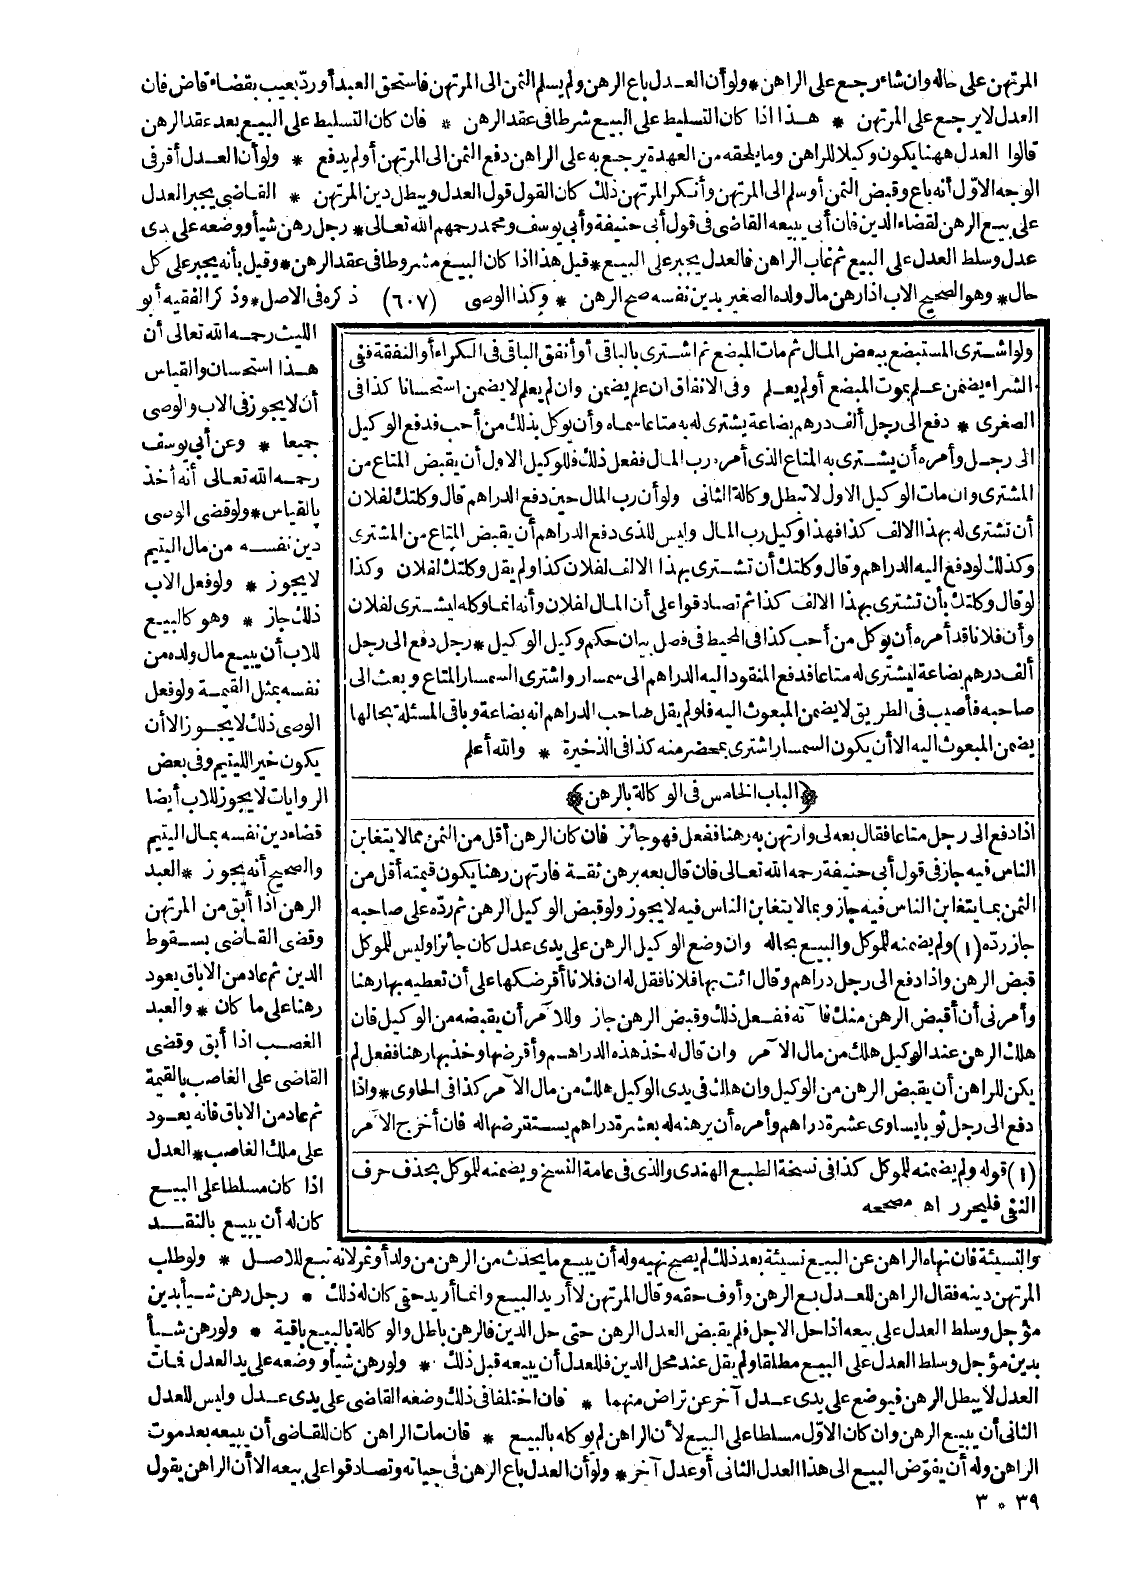 المرتهن على حاله وان شاء رجع على الراهن * ولو أن العدل باع الرهن ولم يسلم الثمن الى المرتهن فاستحق العبد أو ردّ بعيب بقضاء قاض فان
العدل لا يرجع على المرتهن * هذا اذا كان التسليط على البيع شرطا فى عقد الرهن * فان كان التسليط على البيع بعد عقد الرهن
قالوا العدل ههنا يكون وكيلا للراهن وما يلحقه من العهدة يرجع به على الراهن دفع الثمن الى المرتهن أو لم يدفع * ولو أن العدل أقر فى
الوجه الاوّل أنه باع وقبض الثمن أو سلم الى المرتهن وأنكر المرتهن ذلك كان القول قول العدل ويبطل دين المرتهن * القاضى يجبر العدل
على بيع الرهن لقضاء الدين فان أبى يبيعه القاضى فى قول أبى حنيفة وأبى يوسف ومحمد رحمهم الله تعالى * رجل رهن شيأ ووضعه على يدى
عدل وسلط العدل على البيع ثم غاب الراهن فالعدل يجبر على البيع * قيل هذا اذا كان البيع مشروطا فى عقد الرهن * وقيل بأنه يجبر على كل
حال * وهو الصحيح الاب اذا رهن مال ولده الصغير بدين نفسه صح الرهن * وكذا الوصى (٦٠٧) ذكره فى الاصل * وذكر الفقيه أبو
الليث رحمه الله تعالى أن
هذا استحسان والقياس
أن لا يجوز فى الاب والوصى
جميعا * وعن أبى يوسف
رحمه الله تعالى أنه أخذ
بالقياس * ولو قضى الوصى
دين نفسه من مال اليتيم
لا يجوز * ولو فعل الاب
ذلك جاز * وهو كالبيع
للاب أن يبيع مال ولده من
نفسه بمثل القيمة ولو فعل
الوصى ذلك لا يجوز الا أن
يكون خيرا لليتيم وفى بعض
الروايات لا يجوز للاب أيضا
قضاء دين نفسه بمال اليتيم
والصحيح أنه يجوز * العبد
الرهن اذا أبق من المرتهن
وقضى القاضى بسقوط
الدين ثم عاد من الاباق يعود
رهنا على ما كان * والعبد
الغصب اذا أبق وقضى
القاضى على الغاصب بالقيمة
ثم عاد من الاباق فانه يعود
على ملك الغاصب * العدل
اذا كان مسلطا على البيع
كان له أن يبيع بالنقد
ولو اشترى المستبضع ببعض المال ثم مات المبضع ثم اشترى بالباقى أو أنفق الباقى فى الكراء أو النفقة ففى
الشراء يضمن علم بموت المبضع أو لم يعلم وفى الانفاق ان علم يضمن وان لم يعلم لا يضمن استحسانا كذا فى
الصغرى * دفع الى رجل ألف درهم بضاعة يشترى له به متاعا سماه وأن يوكل بذلك من أحب فدفع الوكيل
الى رجل وأمره أن يشترى به المتاع الذى أمره رب المال ففعل ذلك فللوكيل الاول أن يقبض المتاع من
المشترى وان مات الوكيل الاول لا تبطل وكالة الثانى ولو أن رب المال حين دفع الدراهم قال وكلتك لفلان
أن تشترى له بهذا الالف كذا فهذا وكيل رب المال وليس للذى دفع الدراهم أن يقبض المتاع من المشترى
وكذلك لو دفع اليه الدراهم وقال وكلتك أن تشترى بهذا الالف لفلان كذا ولم يقل وكلتك لفلان وكذا
لو قال وكلتك بأن تشترى بهذا الالف كذا ثم تصادقوا على أن المال لفلان وأنه انما وكله ليشترى لفلان
وأن فلانا قد أمره أن يوكل من أحب كذا فى المحيط فى فصل بيان حكم وكيل الوكيل * رجل دفع الى رجل
ألف درهم بضاعة ليشترى له متاعا فدفع المنقود اليه الدراهم الى سمسار واشترى السمسار المتاع وبعث الى
صاحبه فأصيب فى الطريق لا يضمن المبعوث اليه فلو لم يقل صاحب الدراهم انه بضاعة وباقى المسئلة بحالها
يضمن المبعوث اليه الا أن يكون السمسار اشترى بمحضر منه كذا فى الذخيرة * والله أعلم
﴿الباب الخامس فى الوكالة بالرهن﴾
اذا دفع الى رجل متاعا فقال بعه لى وارتهن به رهنا ففعل فهو جائز فان كان الرهن أقل من الثمن بما لا يتغابن
الناس فيه جاز فى قول أبى حنيفة رحمه الله تعالى فان قال بعه برهن ثقة فارتهن رهنا يكون قيمته أقل من
الثمن بما يتغابن الناس فيه جاز وبما لا يتغابن الناس فيه لا يجوز ولو قبض الوكيل الرهن ثم ردّه على صاحبه
جاز ردّه (١) ولم يضمنه للموكل والبيع بحاله وان وضع الوكيل الرهن على يدى عدل كان جائزا وليس للموكل
قبض الرهن واذا دفع الى رجل دراهم وقال ائت بها فلانا فقل له ان فلانا أقرضكها على أن تعطيه بها رهنا
وأمرنى أن أقبض الرهن منك فأته ففعل ذلك وقبض الرهن جاز وللآمر أن يقبضه من الوكيل فان
هلك الرهن عند الوكيل هلك من مال الآمر وان قال له خذ هذه الدراهم وأقرضها وخذ بها رهنا ففعل لم
يكن للراهن أن يقبض الرهن من الوكيل وان هلك فى يدى الوكيل هلك من مال الآمر كذا فى الحاوى * واذا
دفع الى رجل ثوبا يساوى عشرة دراهم وأمره أن يرهنه له بعشرة دراهم يستقرضها له فان أخرج الآمر
(١) قوله ولم يضمنه للموكل كذا فى نسخة الطبع الهندى والذى فى عامة النسخ ويضمنه للموكل بحذف حرف
النفى فليحرر اه مصححه
والنسيئة فان نهاه الراهن عن البيع نسيئة بعد ذلك لم يصح نهيه وله أن يبيع ما يحدث من الرهن من ولد أو ثمر لانه تبع للاصل * ولو طلب
المرتهن دينه فقال الراهن للعدل بع الرهن وأوف حقه وقال المرتهن لا أريد البيع وانما أريد حقى كان له ذلك * رجل رهن شيأ بدين
مؤجل وسلط العدل على بيعه اذا حل الاجل فلم يقبض العدل الرهن حتى حل الدين فالرهن باطل والوكالة بالبيع باقية * ولو رهن شيأ
بدين مؤجل وسلط العدل على البيع مطلقا ولم يقل عند محل الدين فللعدل أن يبيعه قبل ذلك * ولو رهن شيأ ووضعه على يد العدل فمات
العدل لا يبطل الرهن فيوضع على يدى عدل آخر عن تراض منهما * فان اختلفا فى ذلك وضعه القاضى على يدى عدل وليس للعدل
الثانى أن يبيع الرهن وان كان الاوّل مسلطا على البيع لأن الراهن لم يوكله بالبيع * فان مات الراهن كان للقاضى أن يبيعه بعد موت
الراهن وله أن يفوّض البيع الى هذا العدل الثانى أو عدل آخر * ولو أن العدل باع الرهن فى حياته وتصادقوا على بيعه الا أن الراهن يقول
٣٩ * ٣